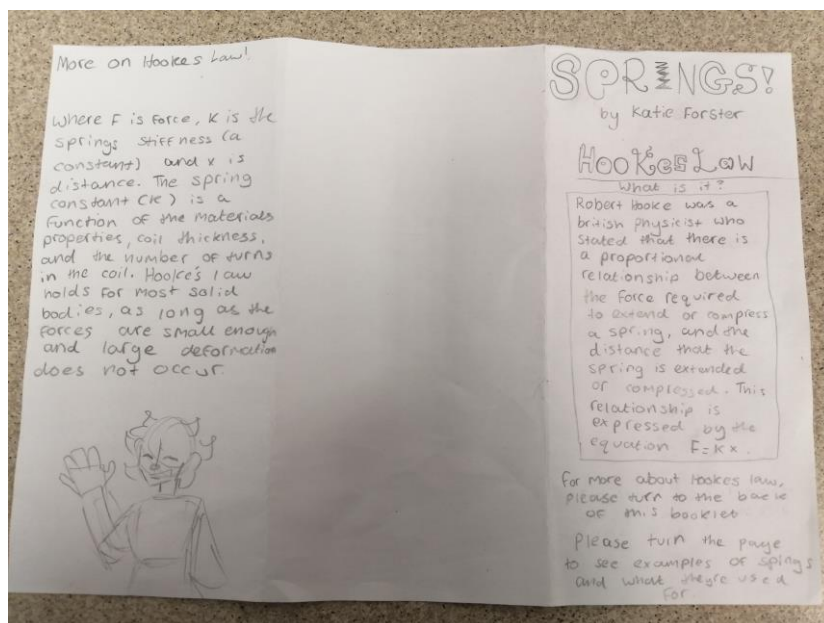 More on Hookes Law!
Where F is Force, K is the
springs stiffness (a
constant) and x is
distance. The spring
constant (K) is a
function of the materials
properties, coil thickness,
and the number of turns
in the coil. Hooke's law
holds for most solid
bodies, as long as the
forces are small enough
and large deformation
does not occur
SPRINGS!
by Katie Forster
Hookes Law
What is it?
Robert Hooke was a
british physicist who
stated that there is
a proportional
relationship between
the force required
to extend or compress
a spring, and the
distance that the
spring is extended
or compressed. This
relationship is
expressed by the
equation F=Kx.
For more about Hookes law,
please turn to the back
of this booklet
Please turn the page
to see examples of spings
and what theyre used
for